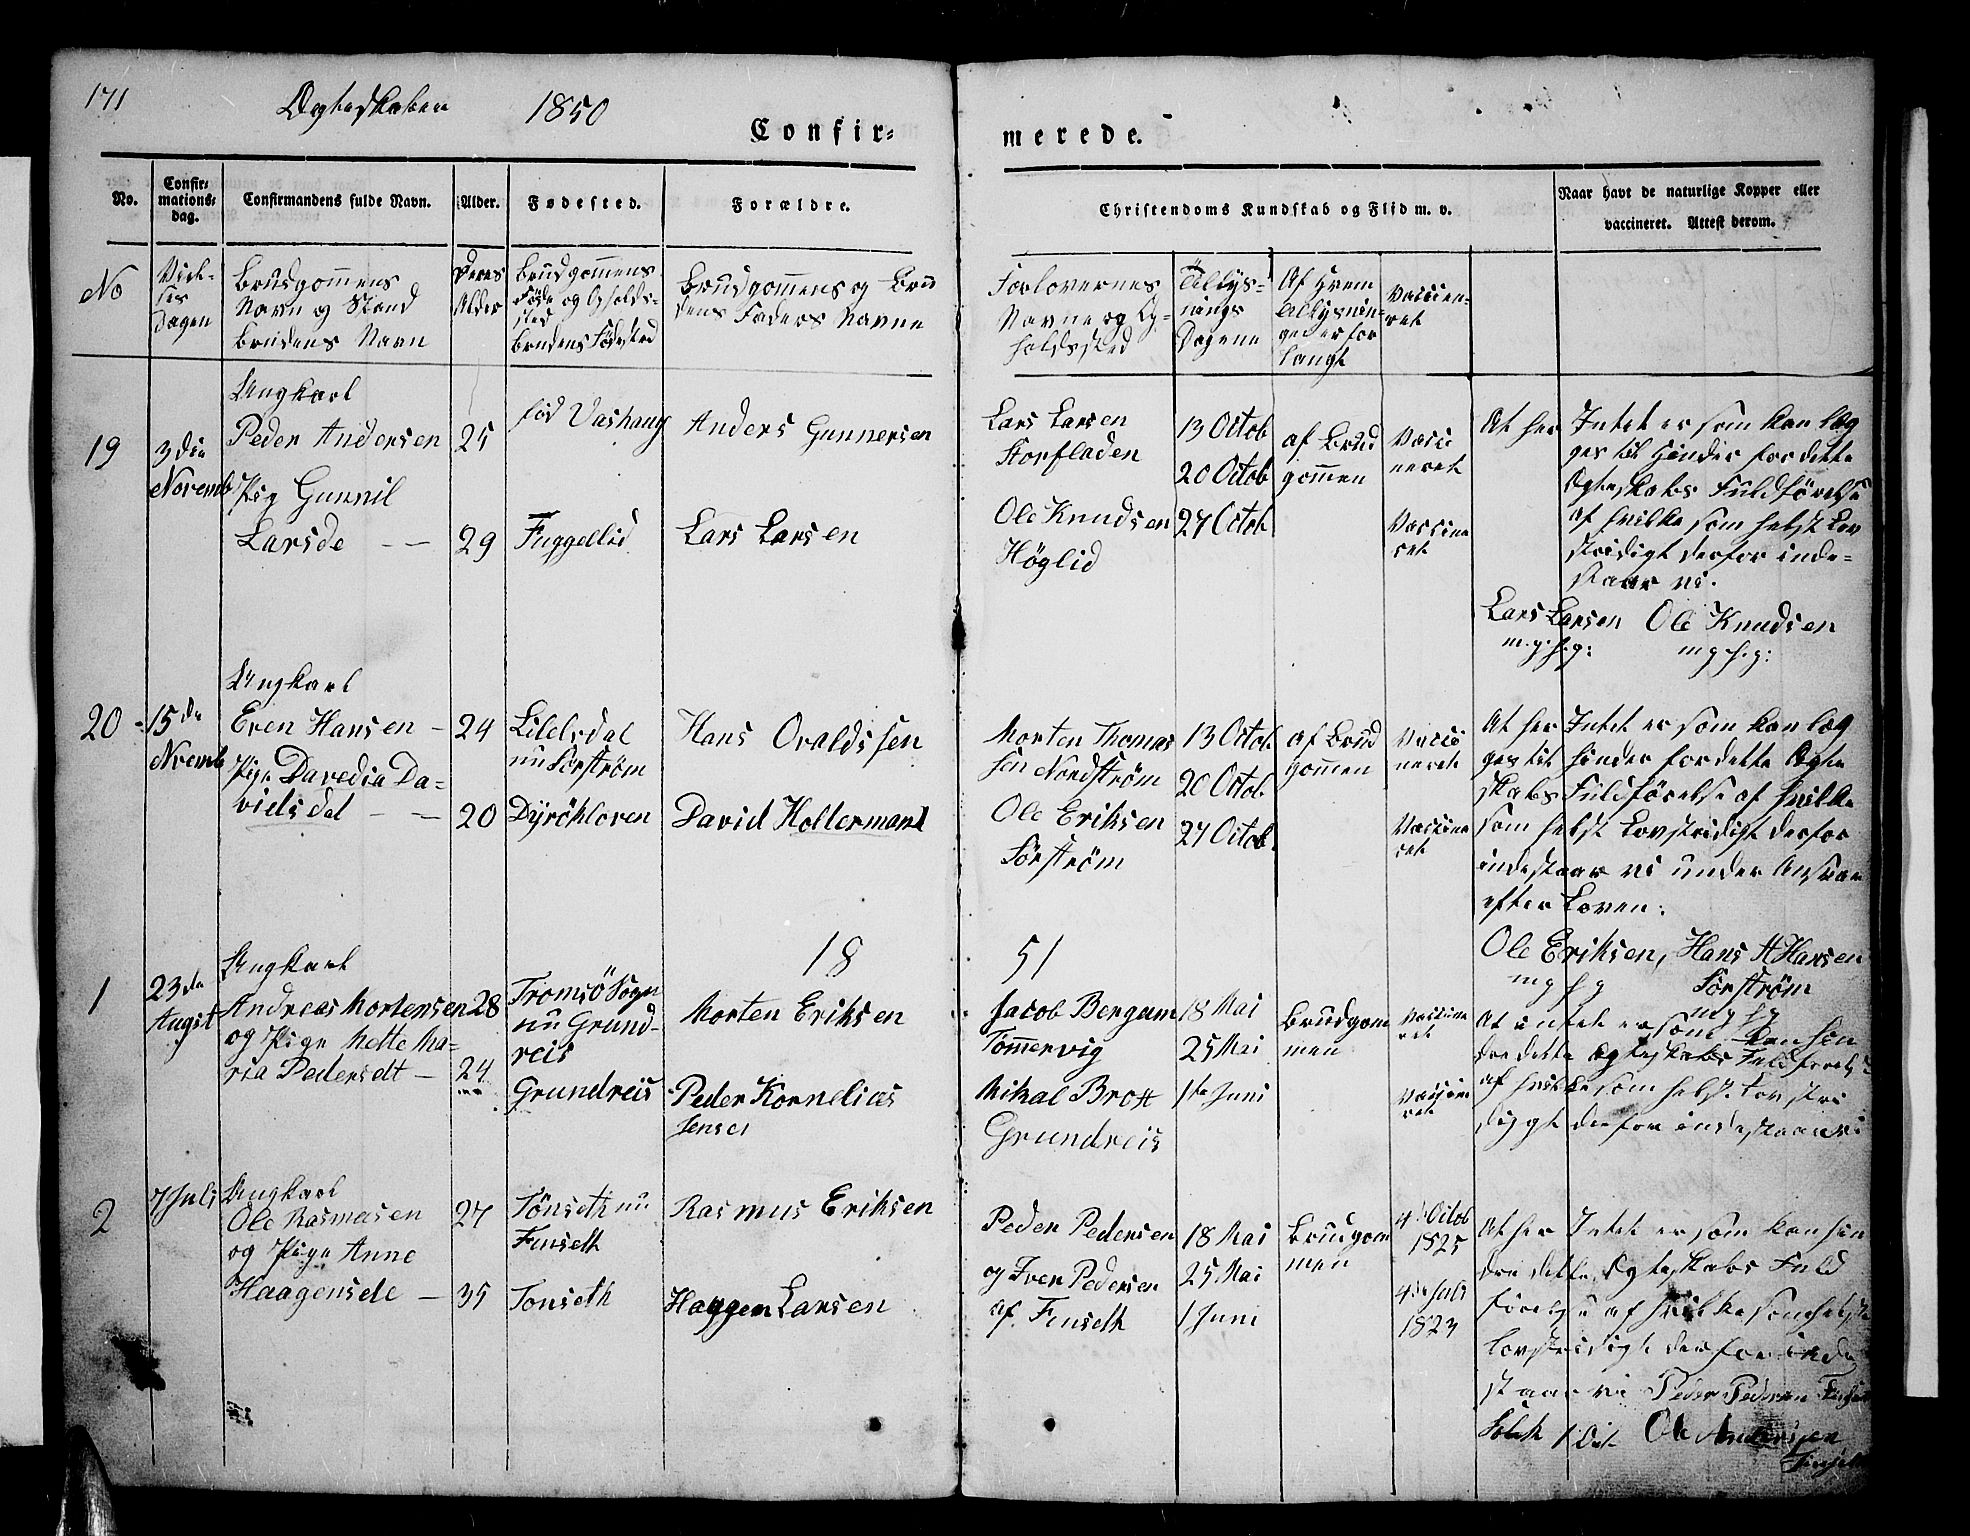 171
Ægteskaben 1850
Confir= merede.
No.
Confir=
mations=
dag.
Confirmandens fulde Navn.
Alder.
Fødested.
Forældre.
Christendoms Kundskab og Flid m. v.
Naar havt de naturlige Kopper eller
vaccineret. Attest derom.
No
Viel-
ses
Dagen
Brudgommens
Navn og Stand
Brudens Navn
Deres
Alder
Brudgommens
Føde og Opholds-
sted
Brudens Fødested
Brudgommens og Bru
dens Faders Navne
Forlovernes
Navne og Op-
holdssted
Tillys-
nings
Dagene
Af Hvem
Tillysnin-
gen er for
langt
Vaccien-
ret
19
3die
Novemb
Ungkarl
Peder Andersen
Pig Gunnil
Larsde - -
25
29
fød Vashaug
Fuggellid
Anders Gunnersen
Lars Larsen
Lars Larsen
Storfladen
Ole Knudsen
Höglid
13 Octob
20 Octob
27 Octob
af Brud
gommen
Vacci
neret
Vaccine
ret
At her Intet er som kan læg
ges til Hinder for dette
Ægteskabs Fuldförelse
af hvilke som helst Lov
stridigt derfor inde-
staar vi.
Lars Larsen Ole Knudsen
m.p.f.g: m p f.g:
20
15de
Nvemb
Ungkarl
Even Hansen -
Pige Davedia Da-
vidsdel - -
24
20
Lilelsdal
nu Sørström
Dyrökloven
Hans Ovaldssen
David Holtermand
Morten Thomas
sen Nordström
Ole Eriksen
Sörström
13 Octob
20 Octob
27 Octob
af Brud
gommen
Vacci
neret
Vaccine
ret
At her Intet er som kan læg
ges til hinder for dette Ægte
skabs Fuldförelse af hvilke
som helst Lovstridigt derfor
indestaar vi under Ansvar
efter Loven.
Ole Eriksen, Hans H Hansen
m p f g Sörström
m p f g
18 51
1
23de
Augst
Ungkarl
Andreas Mortensen
og Pige Mette Ma-
ria Pedersdt -
28
24
Tromsö Sogn
nu Grund-
reis
Grundreis
Morten Eriksen
Peder Kornelias
Jenses
Jacob Bergum
Tommervig
Mikal Brox
Grundreis
18 Mai
25 Mai
1te Juni
Brudgom
men
Vaccine
ret
Vaccine
ret
At intet er som kan hin
dre dette Ægteskabs Fuldforelse
af hvilke som helst Lovstri
digt derfor indestaar vi
2
7 Juli
Ungkarl
Ole Rasmusen
og Pige Anne
Haagensde -
27
35
Tönseth nu
Finseth
Tonseth
Rasmus Eriksen
Haggen Larsen
Peder Pedersen
og Iver Pedersen
af. Finseth
18 Mai
25 Mai
1 Juni
Brudgom
men
4 Octob
1825
4 Juli
1823
At her Intet er som kan hin
dre dette Ægteskabs Fuld
förelse af hvilke som helst
lovstridigt derfor inde
staar vi Peder Pedersen
Ole Andersen